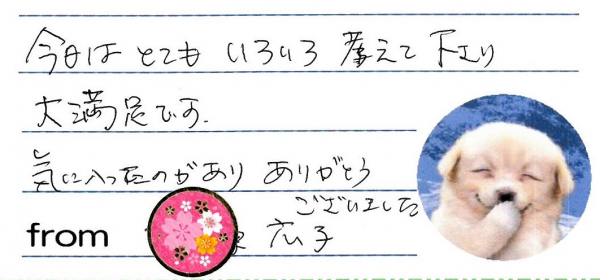 今日は とても いろいろ 考えて 下さり
大満足です.
気に入ったのがあり ありがとう
ございました
from 広子